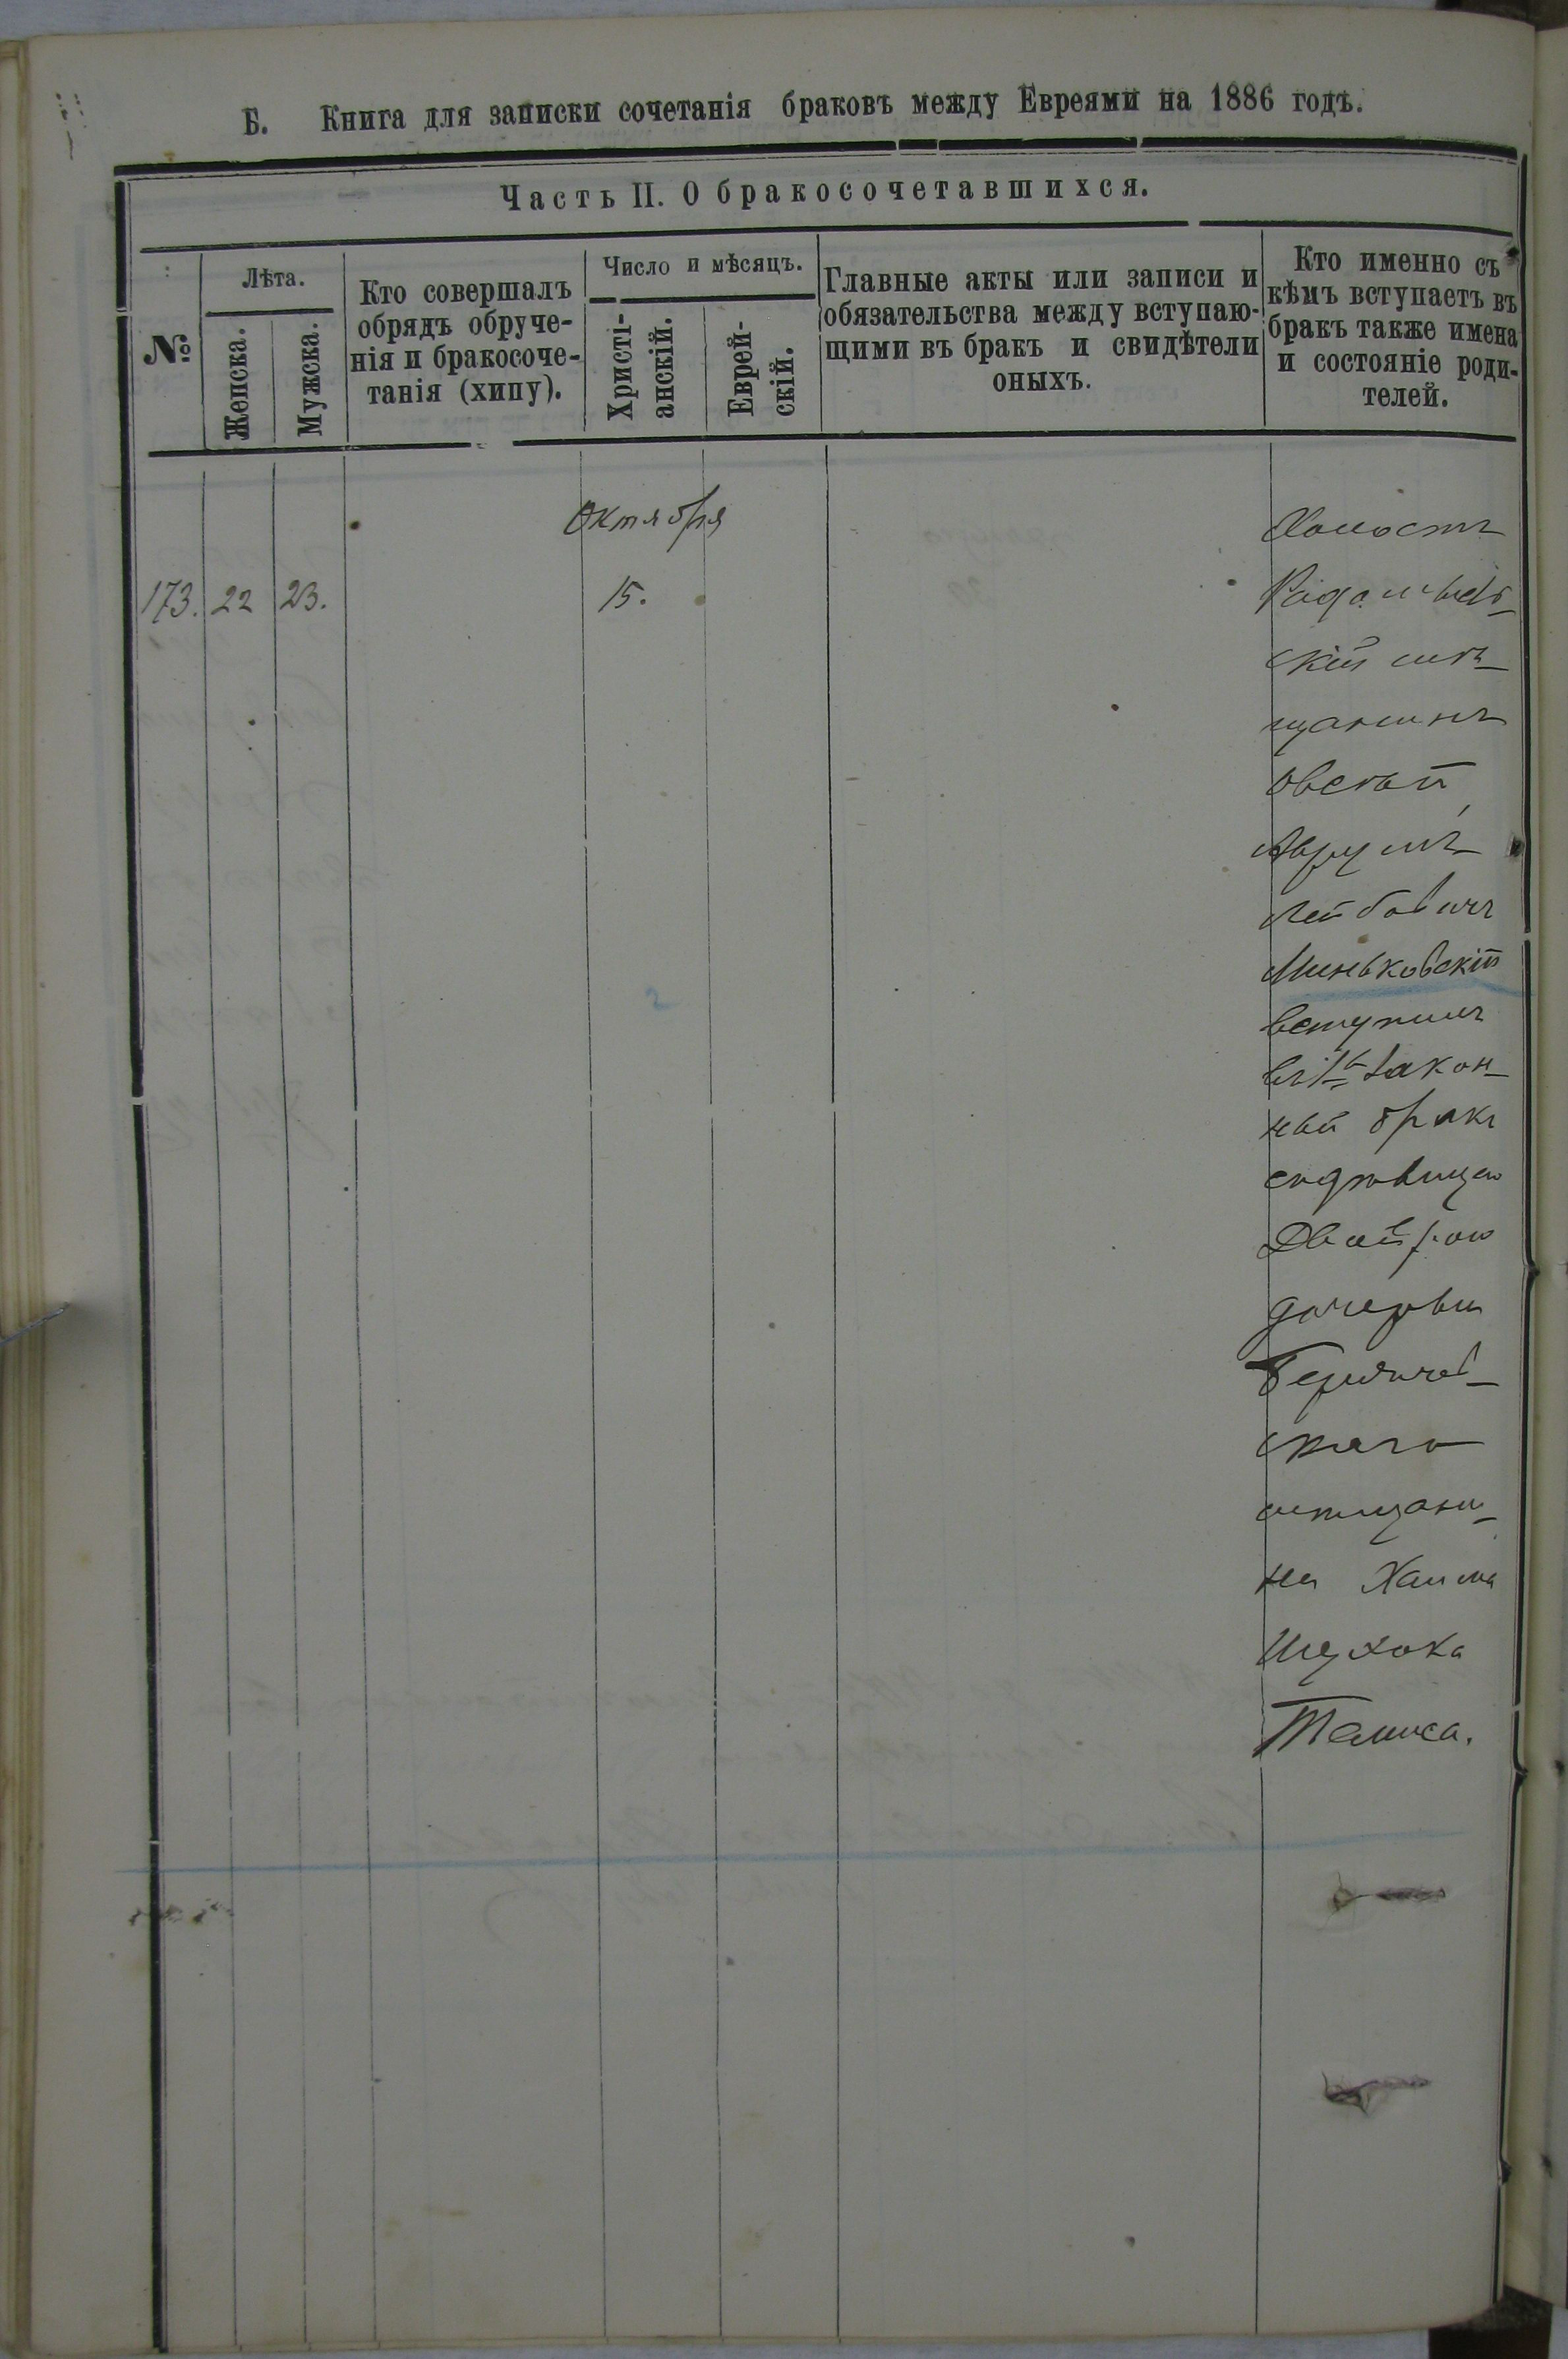 Б. Книга для записки сочетанія браковъ между Евреями на 1886 годъ.
Часть II. О бракосочетавшихся.
№
Лѣта.
Женска.
Мужска.
Кто совершалъ
обрядъ обруче-
нія и бракосоче-
танія (хипу).
Число и мѣсяцъ.
Христі-
анскій.
Еврей-
скій.
Главные акты или записи и
обязательства между вступаю-
щими въ бракъ и свидѣтели
оныхъ.
Кто именно съ
кѣмъ вступаетъ въ
бракъ также имена
и состояніе роди-
телей.
Октября
173. 22 23. 15.
Холостъ
Радомысль-
скій мѣ-
щанинъ
Овсѣй
Аврумъ
Лейбовичъ
Миньковскій
вступилъ
въ 1й закон-
ный бракъ
съ дѣвицею
Двойрою
дочерью
Бердичев-
скаго
мѣщани-
на Хаима
2